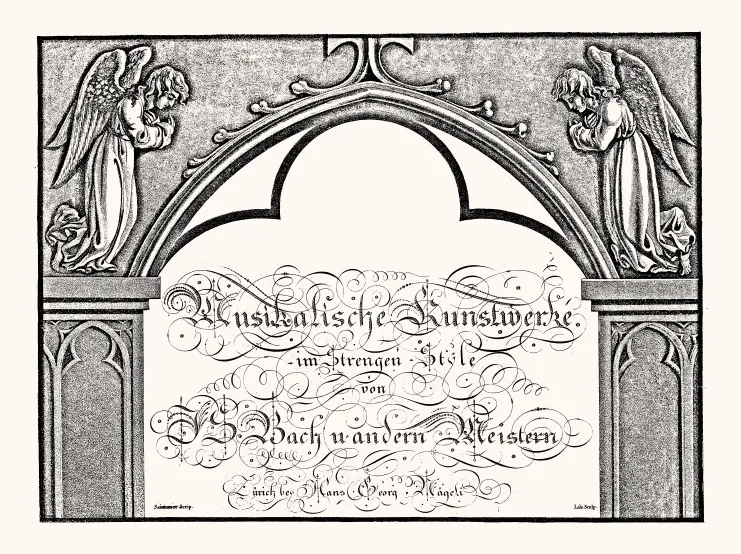 Musikalische Kunstwerke.
im Strengen Style
von
J. S. Bach u. andern Meistern
Zürich bey Hans Georg Nägeli
Saintomer Scrip.
Lale Sculp.